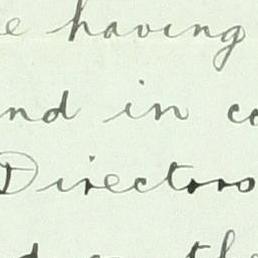 having
nd in
Directors